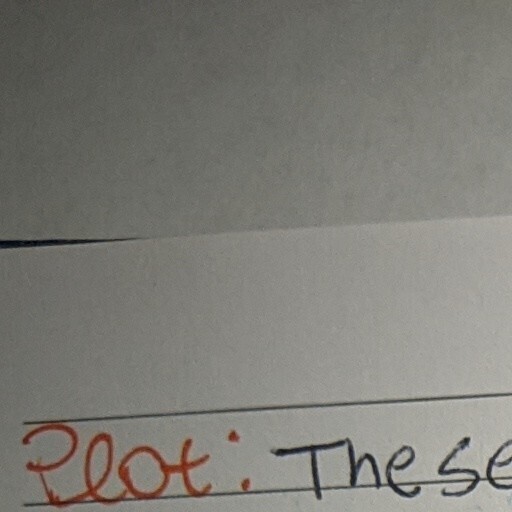 Plot: These